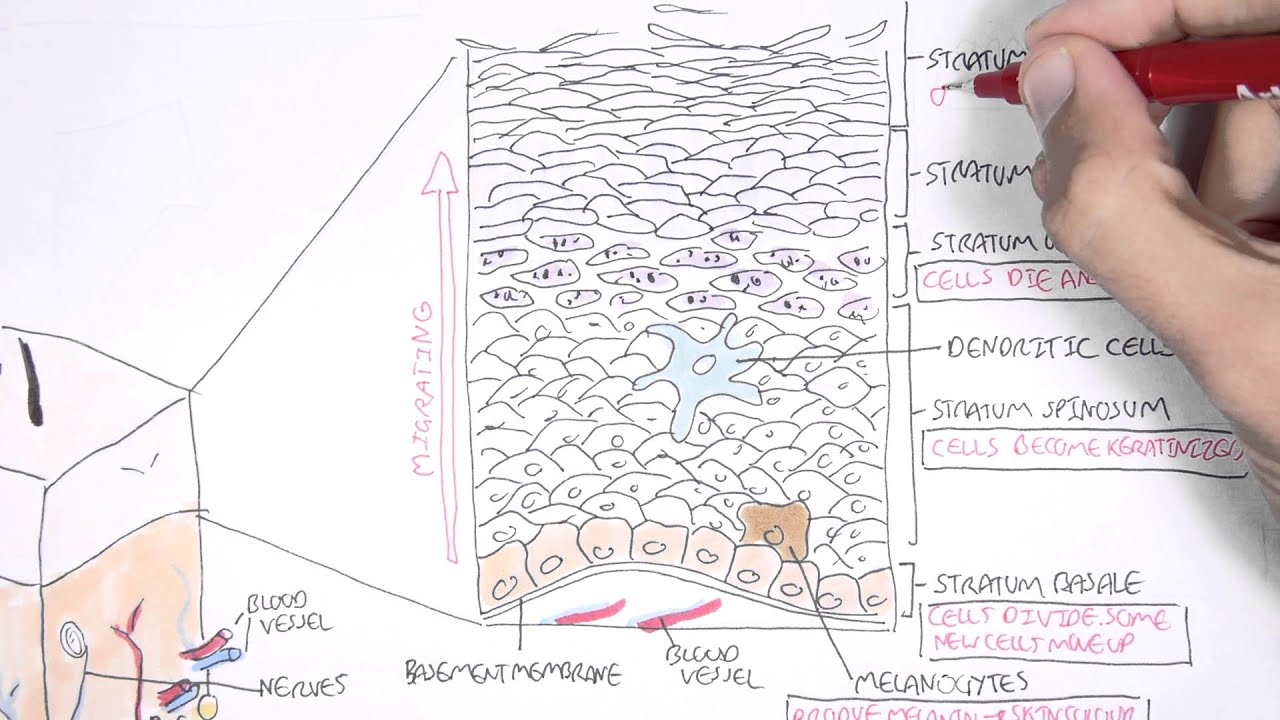 STRATUM
STRATUM
STRATUM
CELLS DIE AN
DENDRITIC CELLS
STRATUM SPINOSUM
CELLS BECOME KERATINIZED
MIGRATING
STRATUM BASALE
CELLS DIVIDE. SOME
NEW CELLS MOVE UP
BLOOD
VESSEL
NERVES
BASEMENT MEMBRANE
BLOOD
VESSEL
MELANOCYTES
MELANIN → SKIN COLOUR